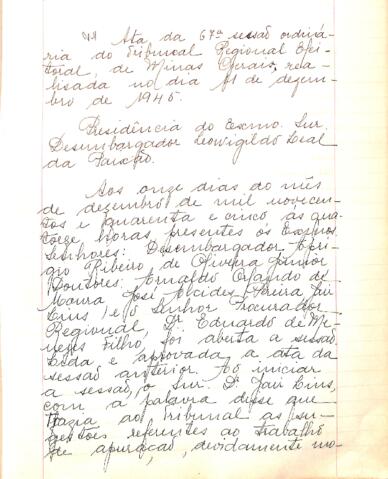 Ata da 67ª sessão ordiná-
ria do Tribunal Regional Elei-
toral, de Minas Gerais, rea-
lisada no dia 11 de dezem-
bro de 1945.
Presidência do Exmo. Sur.
Desembargador Leovigildo Leal
da Paixão.
Aos onze dias do mês
de dezembro de mil novecen-
tos e quarenta e cinco, ás qua-
torze horas, presentes os Exmos.
Senhores: Desembargador
Ribeiro de Oliveira Junior
Doutores: Arnaldo de
Moura José Alcides Pereira Jair
Lins, e o Senhor Procurador
Regional, Dr. Eduardo de Me-
nezes Filho, foi aberta a sessão
Lida e aprovada, a ata da
sessão anterior. Ao iniciar
a sessão, o Sur. Dr. Jair Lins,
com a palavra disse que
trazia ao Tribunal as su-
gestões referentes ao trabalho
de apuração, devidamente mo-